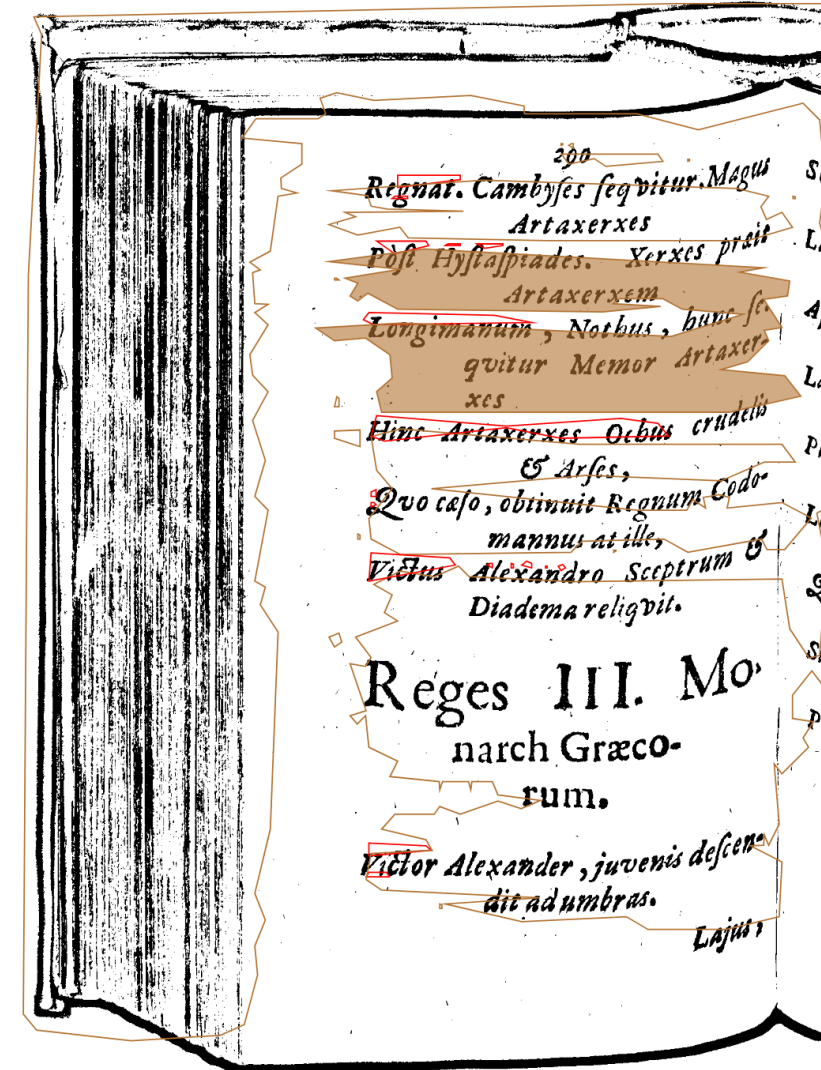 290
Regnat. Cambyſes ſeqvitur. Magus
Artaxerxes
Pòſt Hyſtaſpiades. Xerxes præit
Artaxerxem
Longimanum, Nothus, hunc ſe-
qvitur Memor Artaxer-
xes
Hinc Artaxerxes Ochus crudelis
& Arſes,
Qvo cæſo, obtinuit Regnum Codo-
mannus at ille,
Victus Alexandro Sceptrum &
Diadema reliqvit.
Reges III. Mo-
narch Græco-
rum.
Victor Alexander, juvenis deſcen-
dit ad umbras.
Lajus,